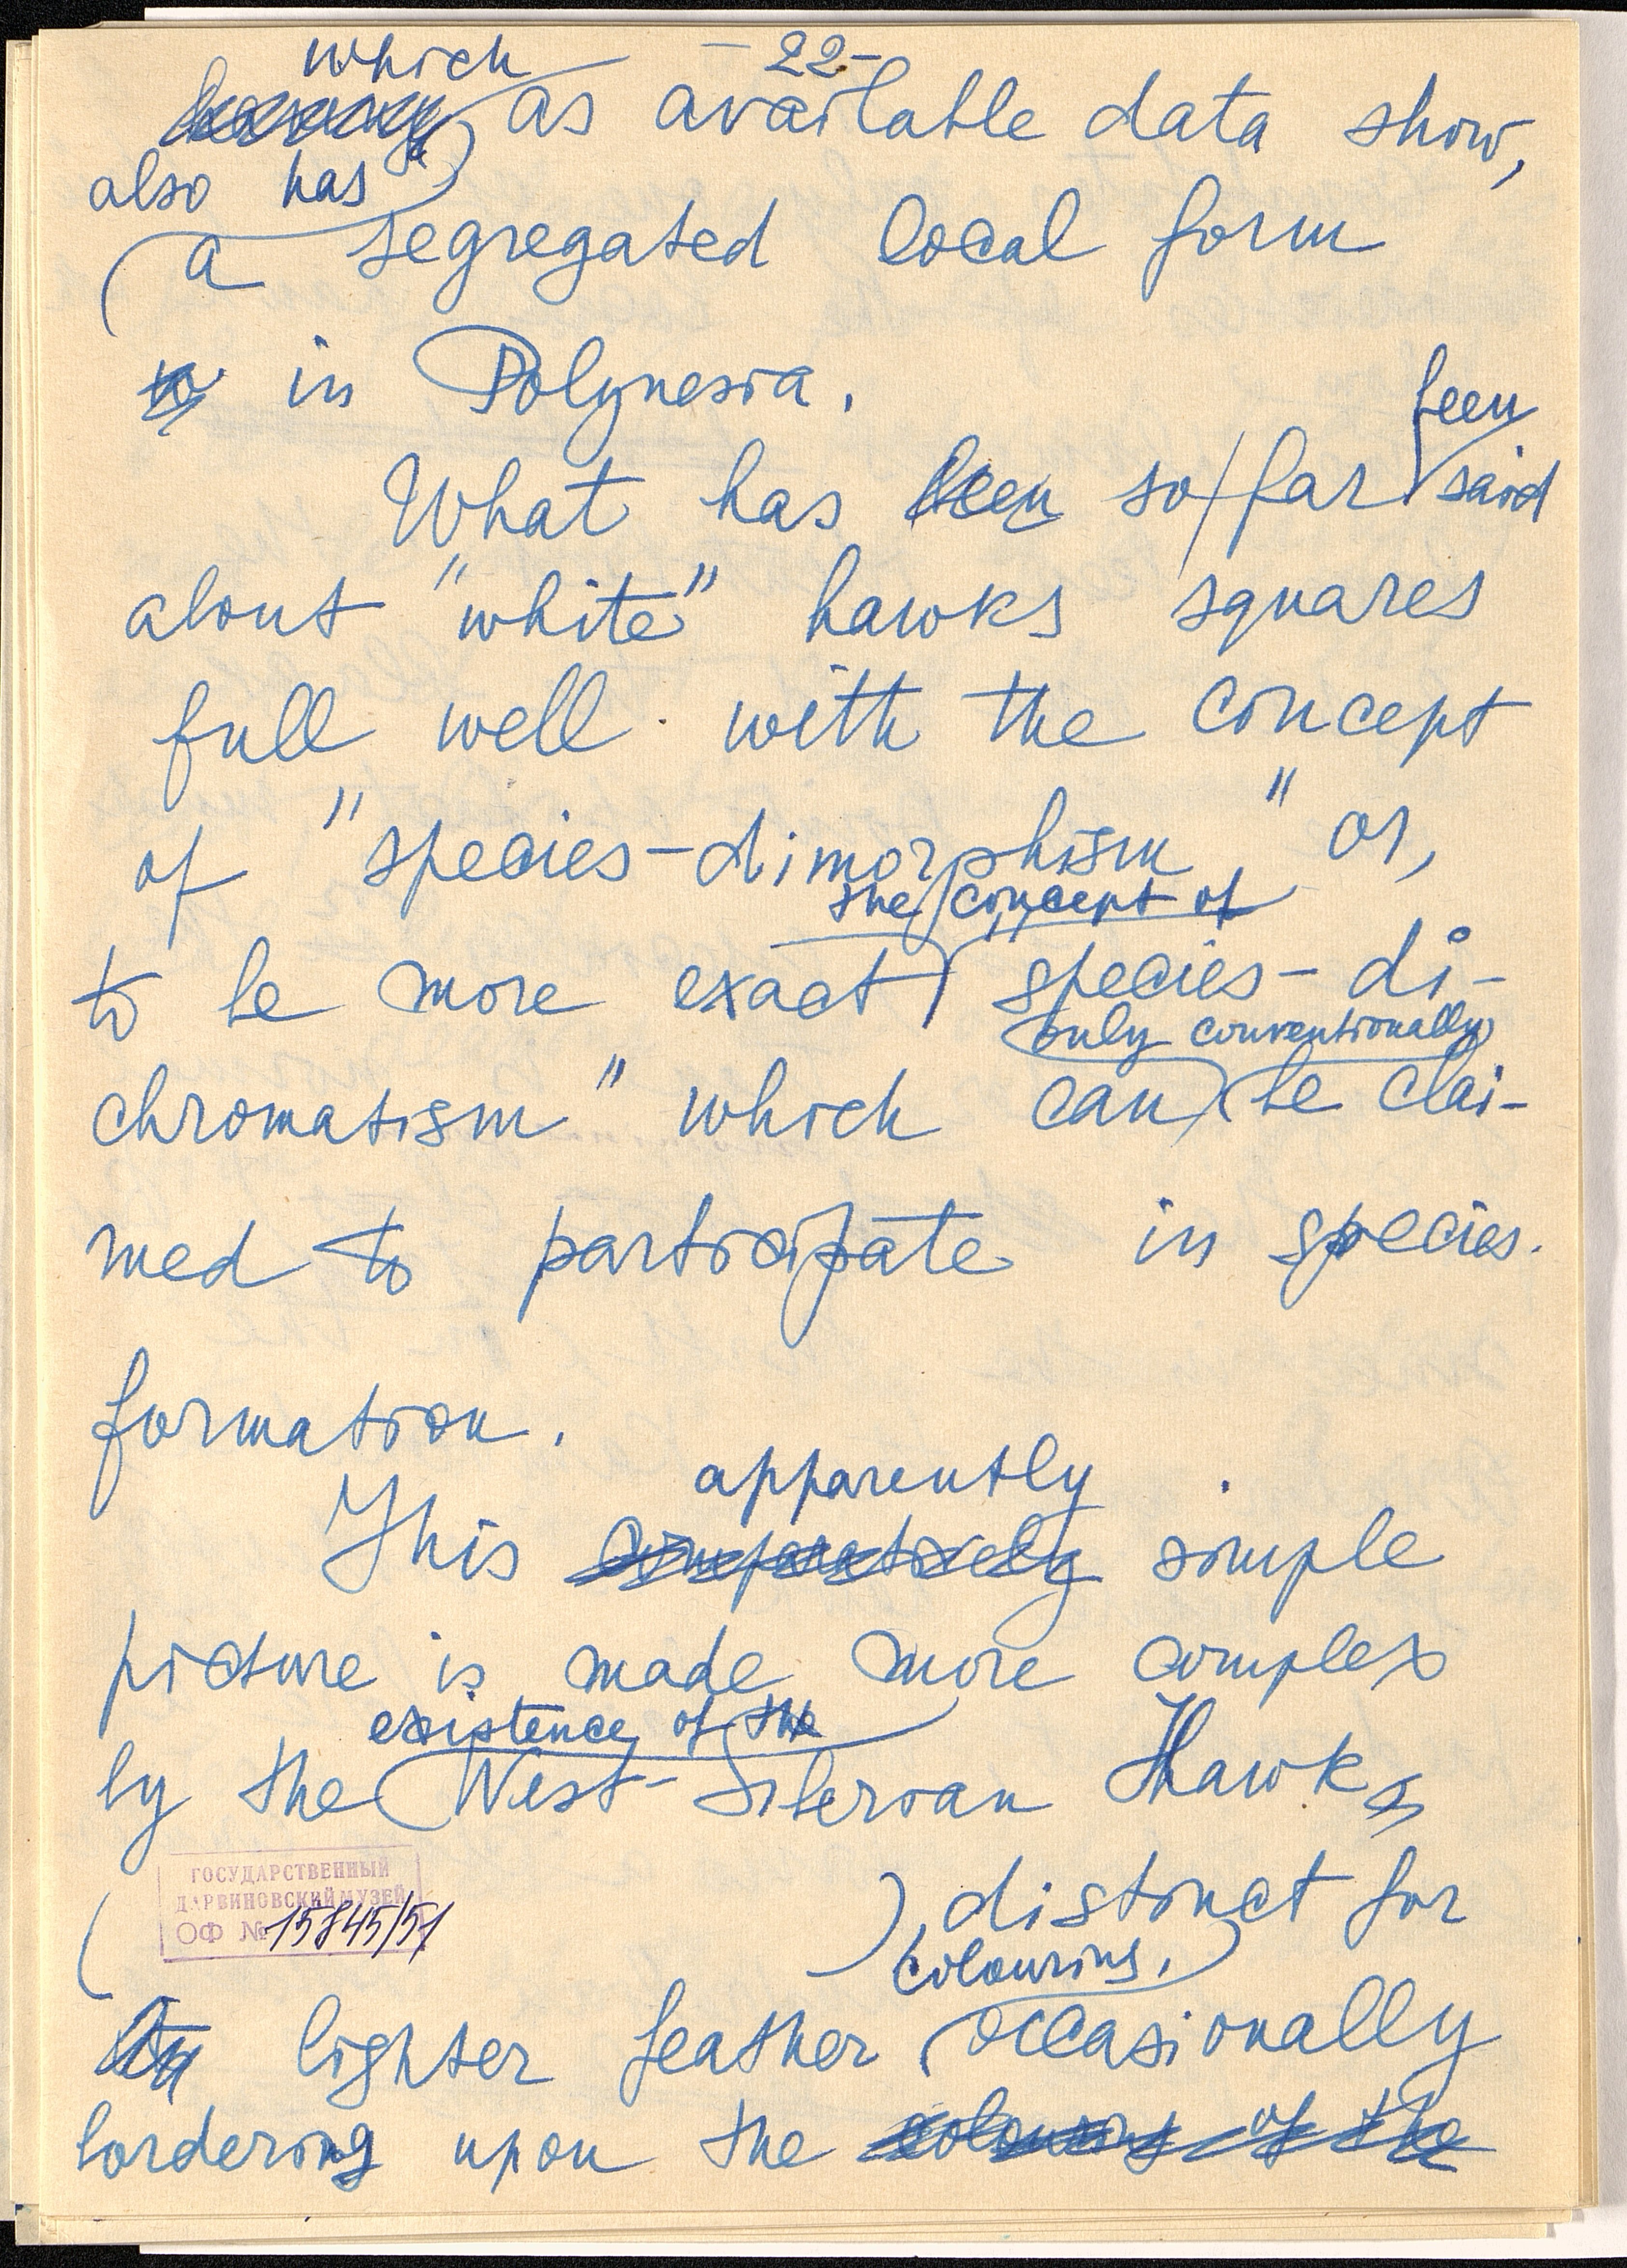 -22-
which
having as available data show,
also has
a segregated local form
to in Polynesia.
been
What has been so far said
about "white" hawks squares
full well with the concept
of "species-dimorphism" or,
the concept of
to be more exact "species-di-
only conventionally
chromatism" which can be clai-
med to participate in species.
formation.
apparently
This comparatively simple
picture is made more complex
existence of the
by the West-Siberian Hawks
ГОСУДАРСТВЕННЫЙ
ДАРВИНОВСКИЙ МУЗЕЙ
ОФ № 15845/51
, distinct for
colouring,
lighter feather occasionally
bordering upon the colouring of the